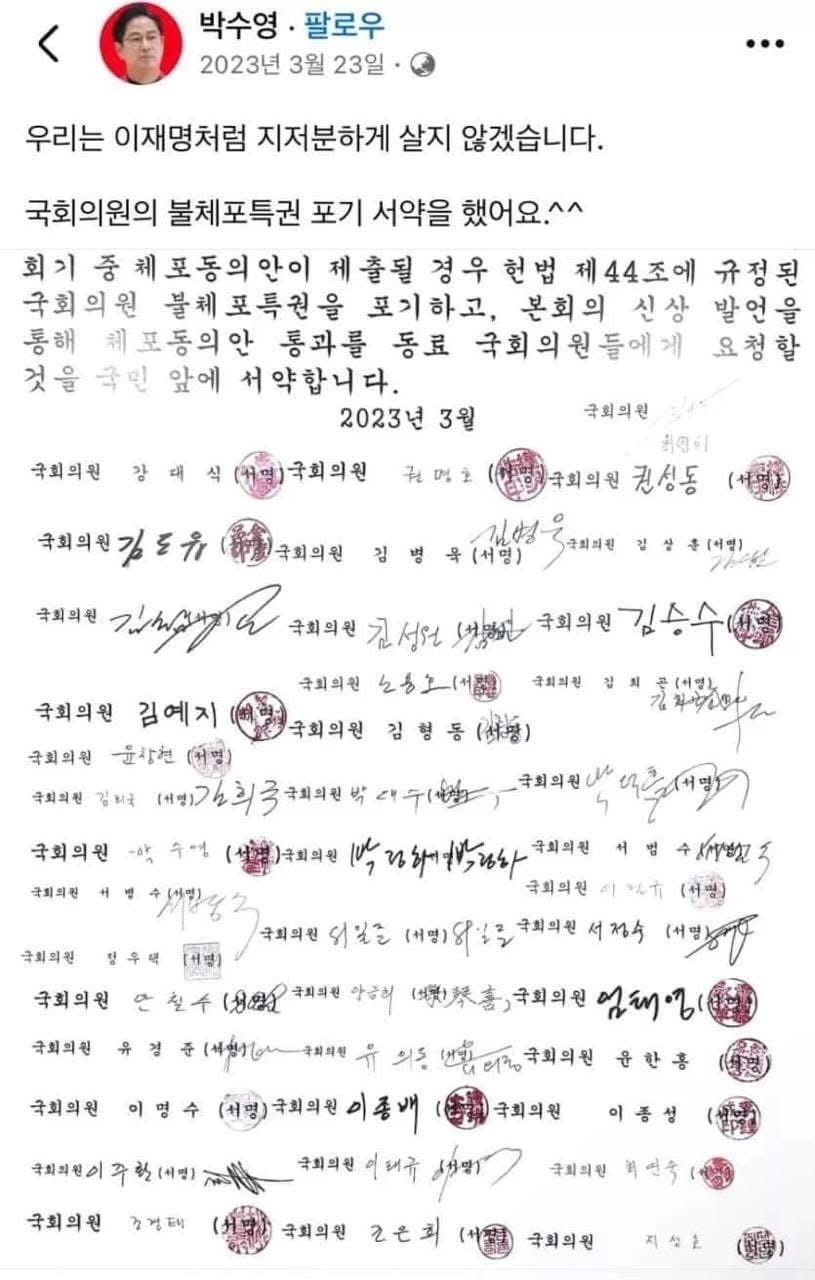 박수영 · 팔로우
2023년 3월 23일 ·
우리는 이재명처럼 지저분하게 살지 않겠습니다.
국회의원의 불체포특권 포기 서약을 했어요.^^
회기 중 체포동의안이 제출될 경우 헌법 제44조에 규정된
국회의원 불체포특권을 포기하고, 본회의 신상 발언을
통해 체포동의안 통과를 동료 국회의원들에게 요청할
것을 국민 앞에 서약합니다.
2023년 3월
국회의원
국회의원 강대식 (서명) 국회의원 권명호 (서명) 국회의원 권성동 (서명)
국회의원 김도읍 (서명) 국회의원 김병욱 (서명) 김병욱 국회의원 김상훈 (서명)
국회의원 국회의원 김성원 (서명) 국회의원 김승수 (서명)
국회의원 노용호 (서명) 국회의원 김희곤 (서명)
국회의원 김예지 (서명) 국회의원 김형동 (서명)
국회의원 윤창현 (서명)
국회의원 김희국 (서명) 김희국 국회의원 박대수 (서명) 국회의원 박덕흠 (서명)
국회의원 박수영 (서명) 국회의원 박정하 박정하 국회의원 서범수 (서명)
국회의원 서병수 (서명) 국회의원 (서명)
국회의원 서일준 (서명) 서일준 국회의원 서정숙 (서명)
국회의원 정우택 (서명)
국회의원 안철수 (서명) 국회의원 양금희 국회의원 엄태영 (서명)
국회의원 유경준 (서명) 국회의원 유의동 (서명) 국회의원 윤한홍 (서명)
국회의원 이명수 (서명) 국회의원 이종배 (서명) 국회의원 이종성 (서명)
국회의원 이주환 (서명) 국회의원 이태규 (서명) 국회의원 최연숙 (서명)
국회의원 조경태 (서명) 국회의원 조은희 (서명) 국회의원 지성호 (서명)